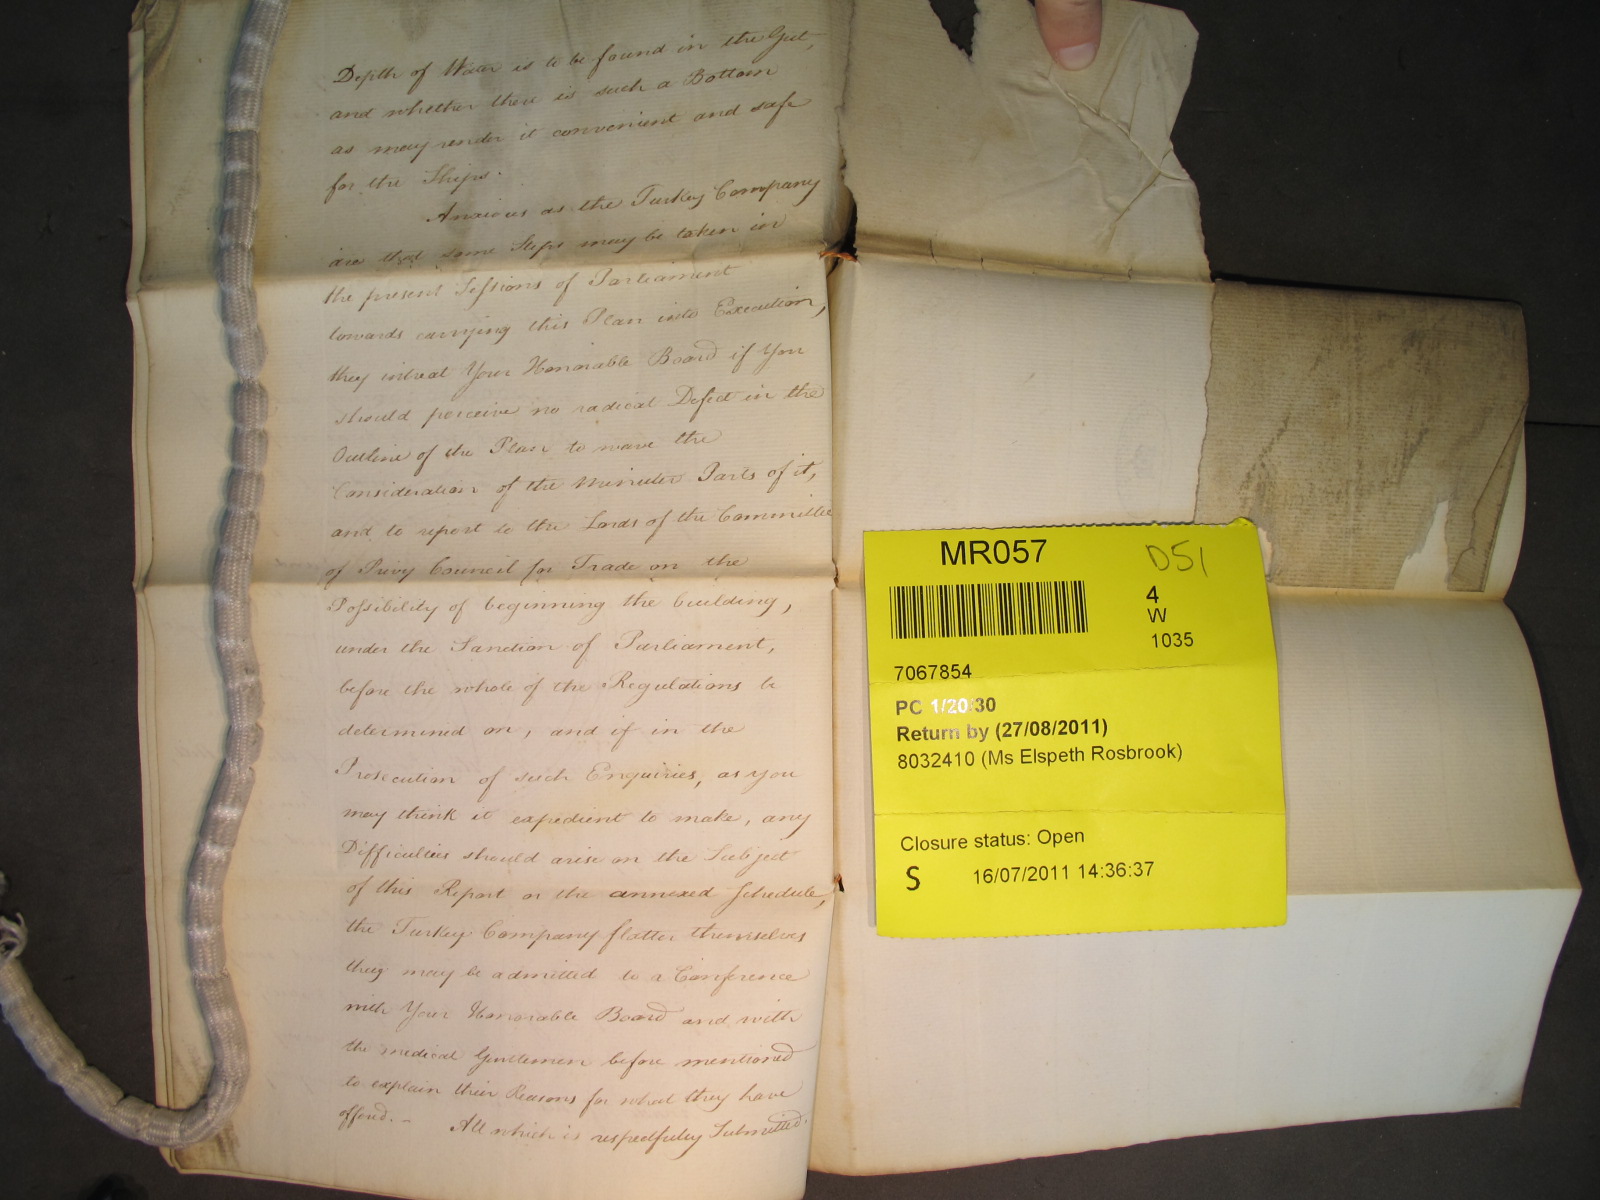 Depth of Water is to be found in the Gut,
and whether there is such a Bottom
as may render it convenient and safe
for the Ships.
Anxious as the Turkey Company
are that some Steps may be taken in
the present Sessions of Parliament
towards carrying this Plan into Execution,
they intreat Your Honorable Board if You
should perceive no radical Defect in the
Outline of the Plan to wave the
Consideration of the Minuter Parts of it,
and to report to the Lords of the Committee
of Privy Council for Trade on the
Possibility of beginning the building,
under the Sanction of Parliament,
before the whole of the Regulations be
determined on, and if in the
Prosecution of such Enquiries, as you
may think it expedient to make, any
Difficulties should arise on the Subject
of this Report or the annexed Schedule,
the Turkey Company flatter themselves
they may be admitted to a Conference
with Your Honorable Board and with
the medical Gentlemen before mentioned
to explain their Reasons for what they have
offered. - All which is respectfully Submitted.
MR057
D51
4
W
1035
7067854
PC 1/20/30
Return by (27/08/2011)
8032410 (Ms Elspeth Rosbrook)
Closure status: Open
S 16/07/2011 14:36:37